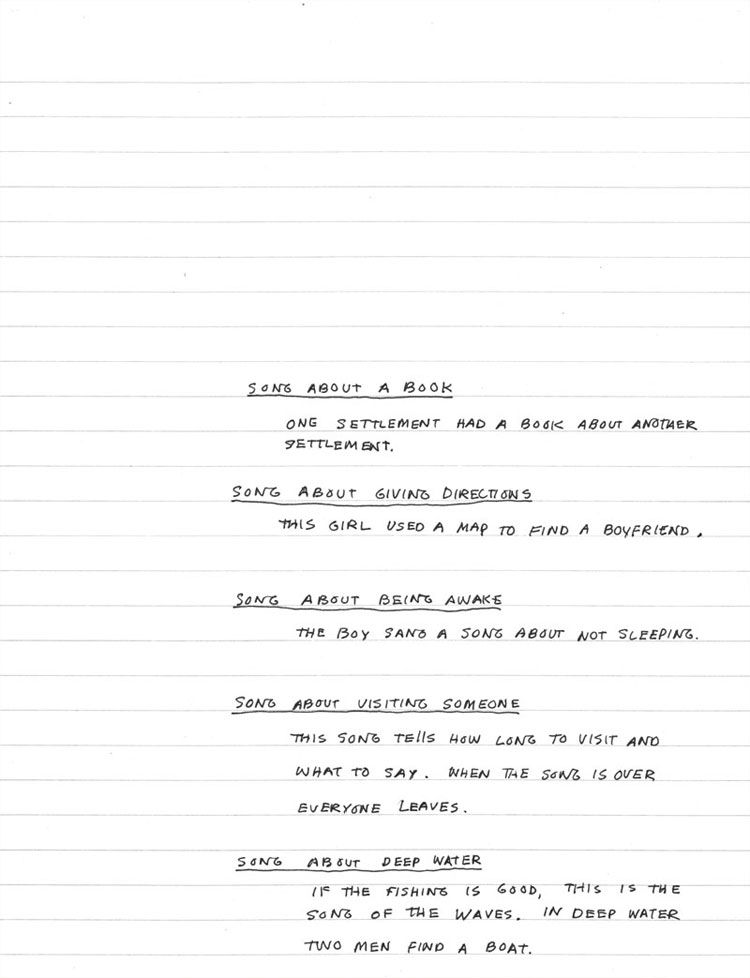 SONG ABOUT A BOOK
ONE SETTLEMENT HAD A BOOK ABOUT ANOTHER
SETTLEMENT.
SONG ABOUT GIVING DIRECTIONS
THIS GIRL USED A MAP TO FIND A BOYFRIEND.
SONG ABOUT BEING AWAKE
THE BOY SANG A SONG ABOUT NOT SLEEPING.
SONG ABOUT VISITING SOMEONE
THIS SONG TELLS HOW LONG TO VISIT AND
WHAT TO SAY. WHEN THE SONG IS OVER
EVERYONE LEAVES.
SONG ABOUT DEEP WATER
IF THE FISHING IS GOOD, THIS IS THE
SONG OF THE WAVES. IN DEEP WATER
TWO MEN FIND A BOAT.